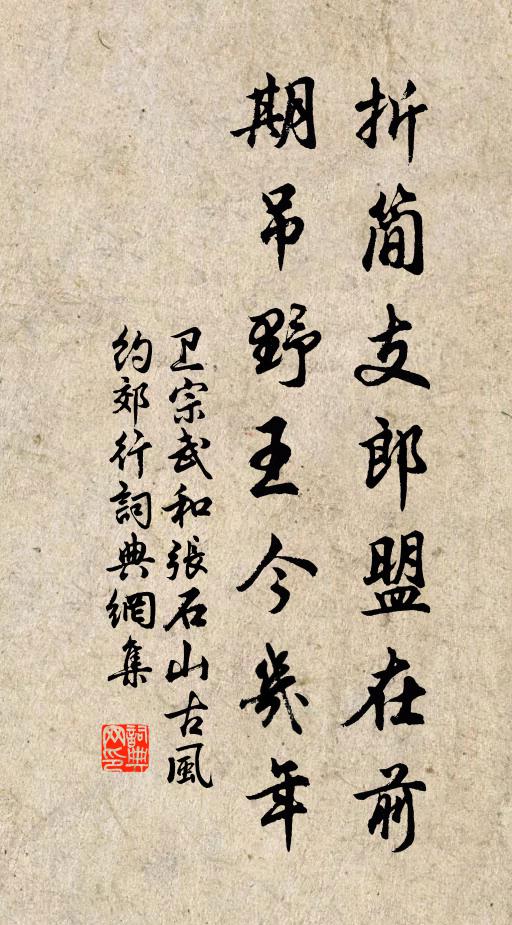 折简支郎盟在前
期吊野王今幾年
卫宗武和張石山古風
約郊行詞典網集
詞典
网印